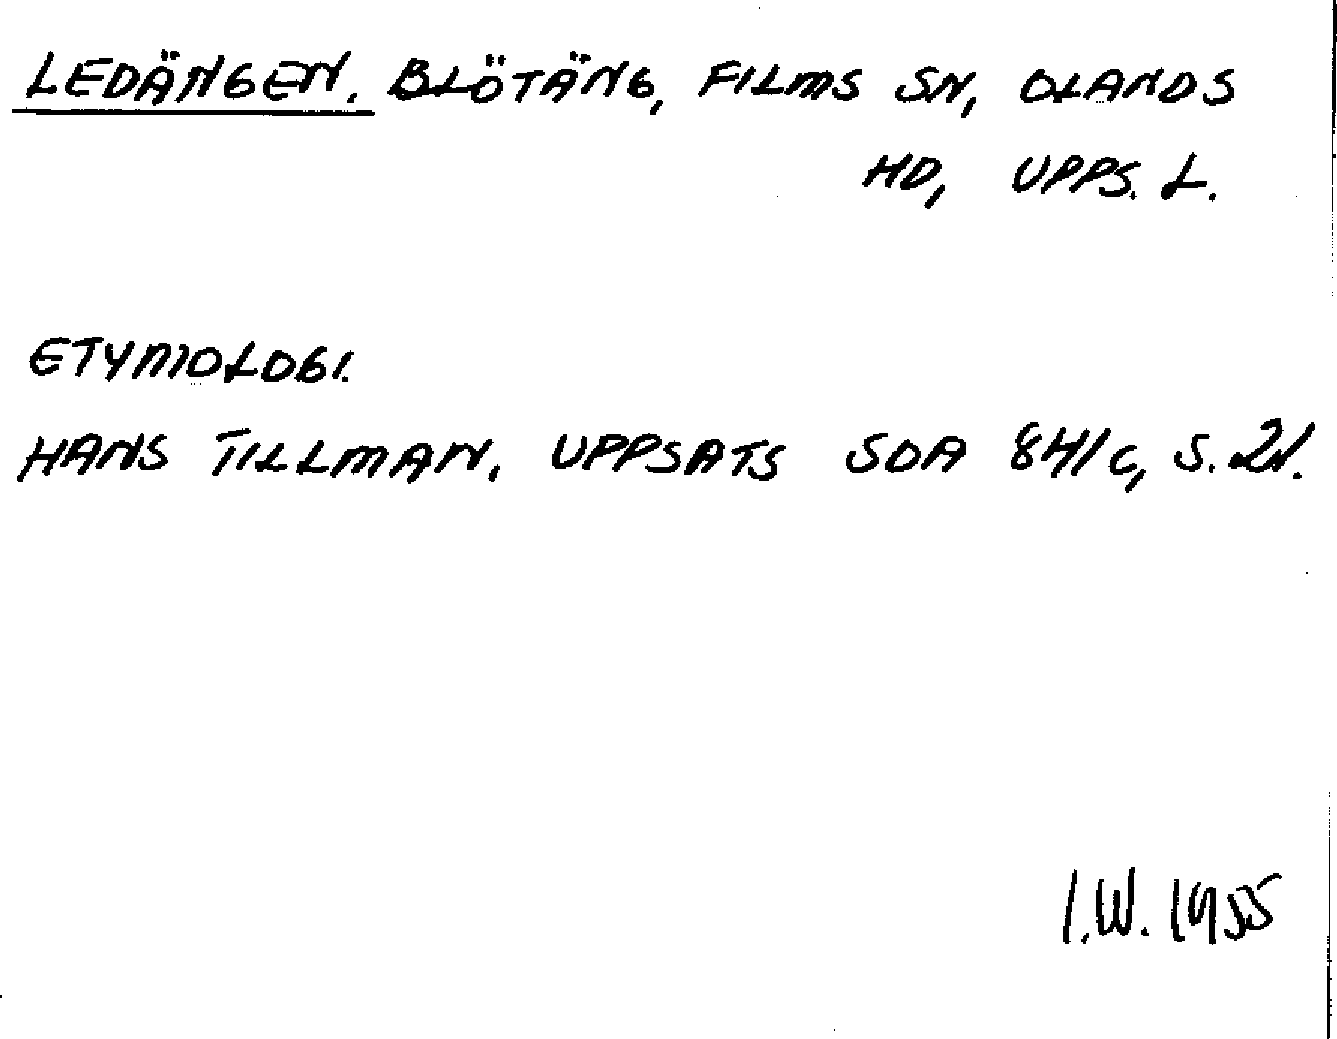 LEDÄNGEN. BLÖTÄNG, FILMS SN, OLANDS
HD, UPPS. L.
ETYMOLOGI.
HANS TILLMAN. UPPSATS SOA 841c, S. 21.
I.W. 1955